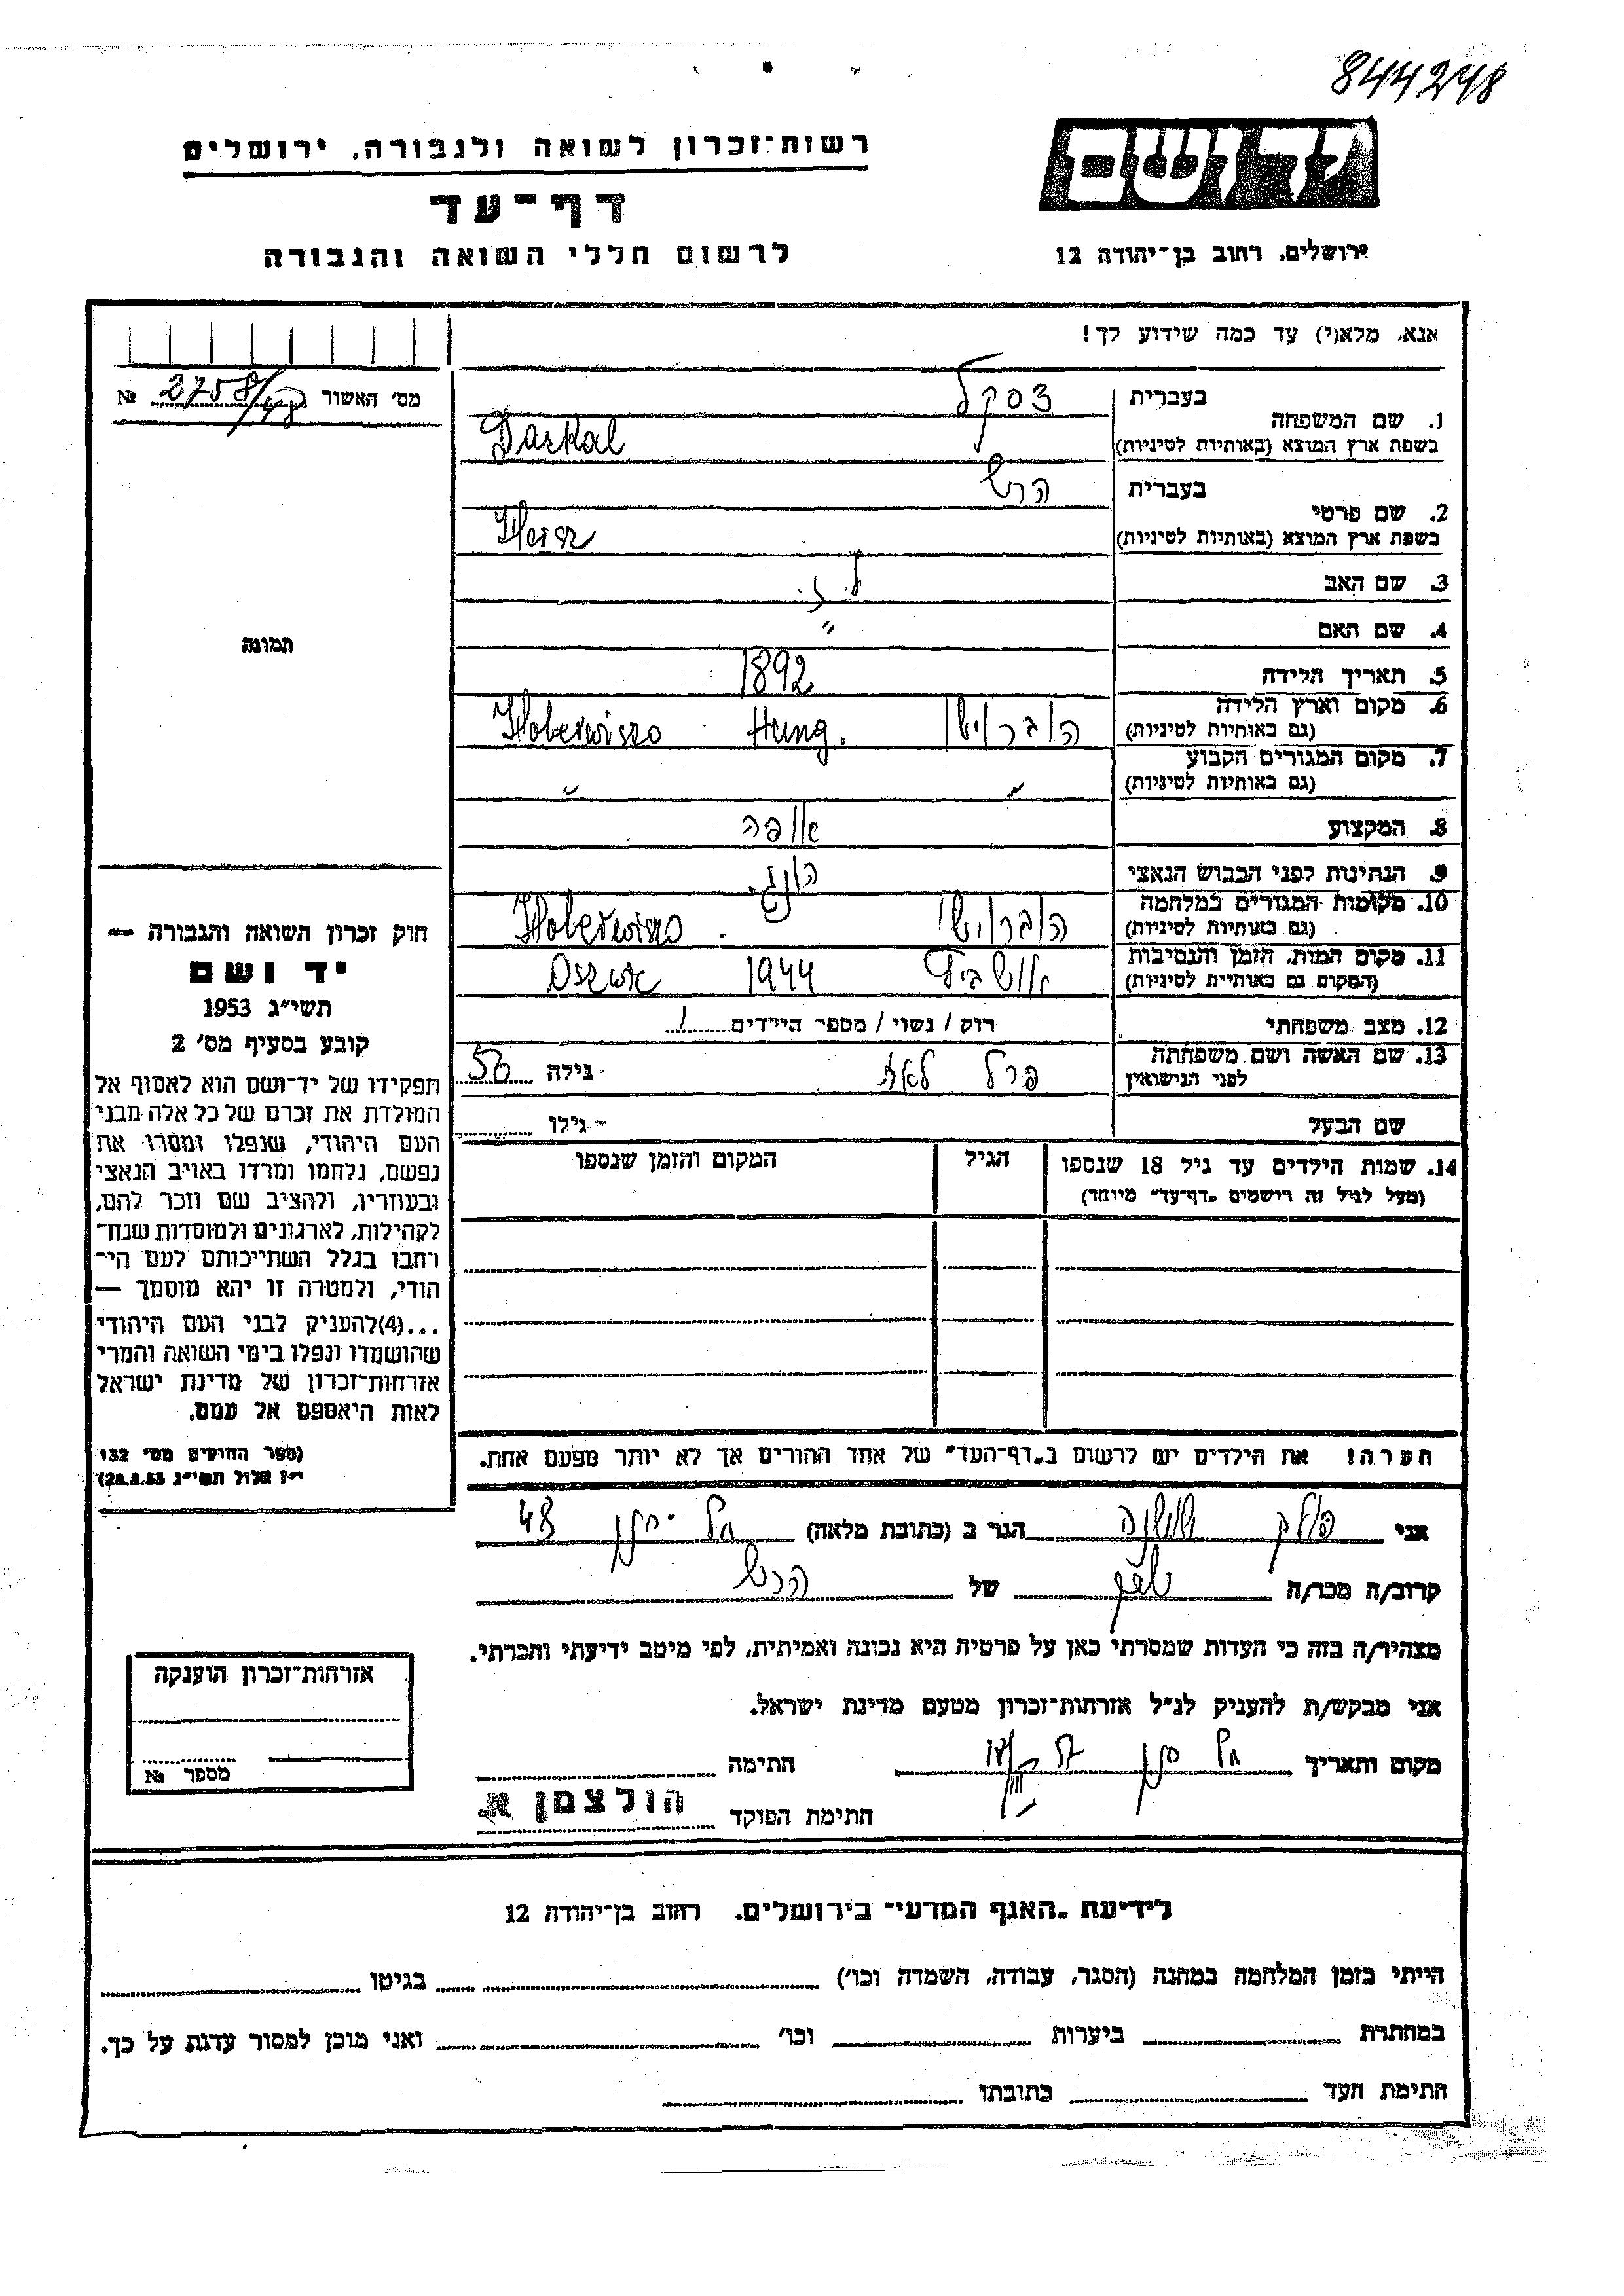 844248
רשות־זכרון לשואה ולגבורה, ירושלים
יד ושם
דף־עד
לרשום חללי השואה והגבורה
ירושלים, רחוב בן־יהודה 12
אנא, מלא(י) עד כמה שידוע לך!
מס׳ האשור № 2758/48
1. שם המשפחה
בעברית דסקל
בשפת ארץ המוצא (באותיות לטיניות) Daskal
2. שם פרטי
בעברית הרש
בשפת ארץ המוצא (באותיות לטיניות) Hersz
3. שם האב ל. י.
4. שם האם "
תמונה
5. תאריך הלידה 1892
6. מקום וארץ הלידה
(גם באותיות לטיניות) הוברויש Hung. Hoberwiszo
7. מקום המגורים הקבוע
(גם באותיות לטיניות) " "
8. המקצוע אופה
9. הנתינות לפני הכבוש הנאצי הונג.
10. מקומות המגורים במלחמה
(גם באותיות לטיניות) הוברויש Hoberwiszo
11. מקום המות, הזמן והנסיבות
(המקום גם באותיות לטיניות) אושביץ 1944
12. מצב משפחתי רוק / נשוי / מספר הילדים 1
13. שם האשה ושם משפחתה
לפני הנישואין פרל לאה גילה 50
שם הבעל גילו
14. שמות הילדים עד גיל 18 שנספו
(מעל לגיל זה רישמים „דף־עד" מיוחד)
הגיל
המקום והזמן שנספו
חוק זכרון השואה והגבורה —
יד ושם
תשי״ג 1953
קובע בסעיף מס׳ 2
תפקידו של יד־ושם הוא לאסוף אל
המולדת את זכרם של כל אלה מבני
העם היהודי, שנפלו ומסרו את
נפשם, נלחמו ומרדו באויב הנאצי
ובעוזריו, ולהציב שם וזכר להם,
לקהילות, לארגונים ולמוסדות שנח־
רבו בגלל השתייכותם לעם הי־
הודי, ולמטרה זו יהא מוסמך —
...(4)להעניק לבני העם היהודי
שהושמדו ונפלו בימי השואה והמרי
אזרחות־זכרון של מדינת ישראל
לאות היאספם אל עמם.
(ספר החוקים מס׳ 132
י״ז אלול תשי״ג 28.8.53)
הערה! את הילדים יש לרשום ב„דף־העד" של אחד ההורים אך לא יותר מפעם אחת.
אני פולק שושנה הגר ב (כתובת מלאה) 48
קרוב/ה מכר/ה של הרש
מצהיר/ה בזה כי העדות שמסרתי כאן על פרטיה היא נכונה ואמיתית, לפי מיטב ידיעתי והכרתי.
אני מבקש/ת להעניק לנ״ל אזרחות־זכרון מטעם מדינת ישראל.
מקום ותאריך חתימה
חתימת הפוקד הולצמן א.
אזרחות־זכרון הוענקה
מספר №
לידיעת „האגף המדעי" בירושלים, רחוב בן־יהודה 12
הייתי בזמן המלחמה במחנה (הסגר, עבודה, השמדה וכו׳) בגיטו
במחתרת ביערות וכו׳ ואני מוכן למסור עדות על כך.
חתימת העד כתובתו